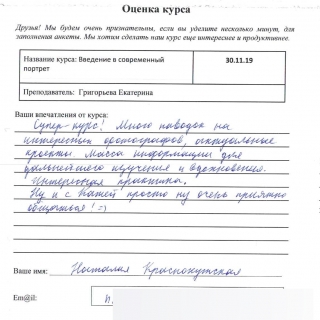 Оценка курса
Друзья! Мы будем очень признательны, если вы уделите несколько минут, для
заполнения анкеты. Мы хотим сделать наш курс еще интереснее и продуктивнее.
Название курса: Введение в современный
портрет
30.11.19
Преподаватель: Григорьева Екатерина
Ваши впечатления от курса:
Супер-курс! Много наводок на
интересных фотографов, актуальные
проекты. Масса информации для
дальнейшего изучения и вдохновения.
Интересная практика.
Ну и с Катей просто ну очень приятно
общаться! =)
Ваше имя: Наталия Краснокутская
Em@il: